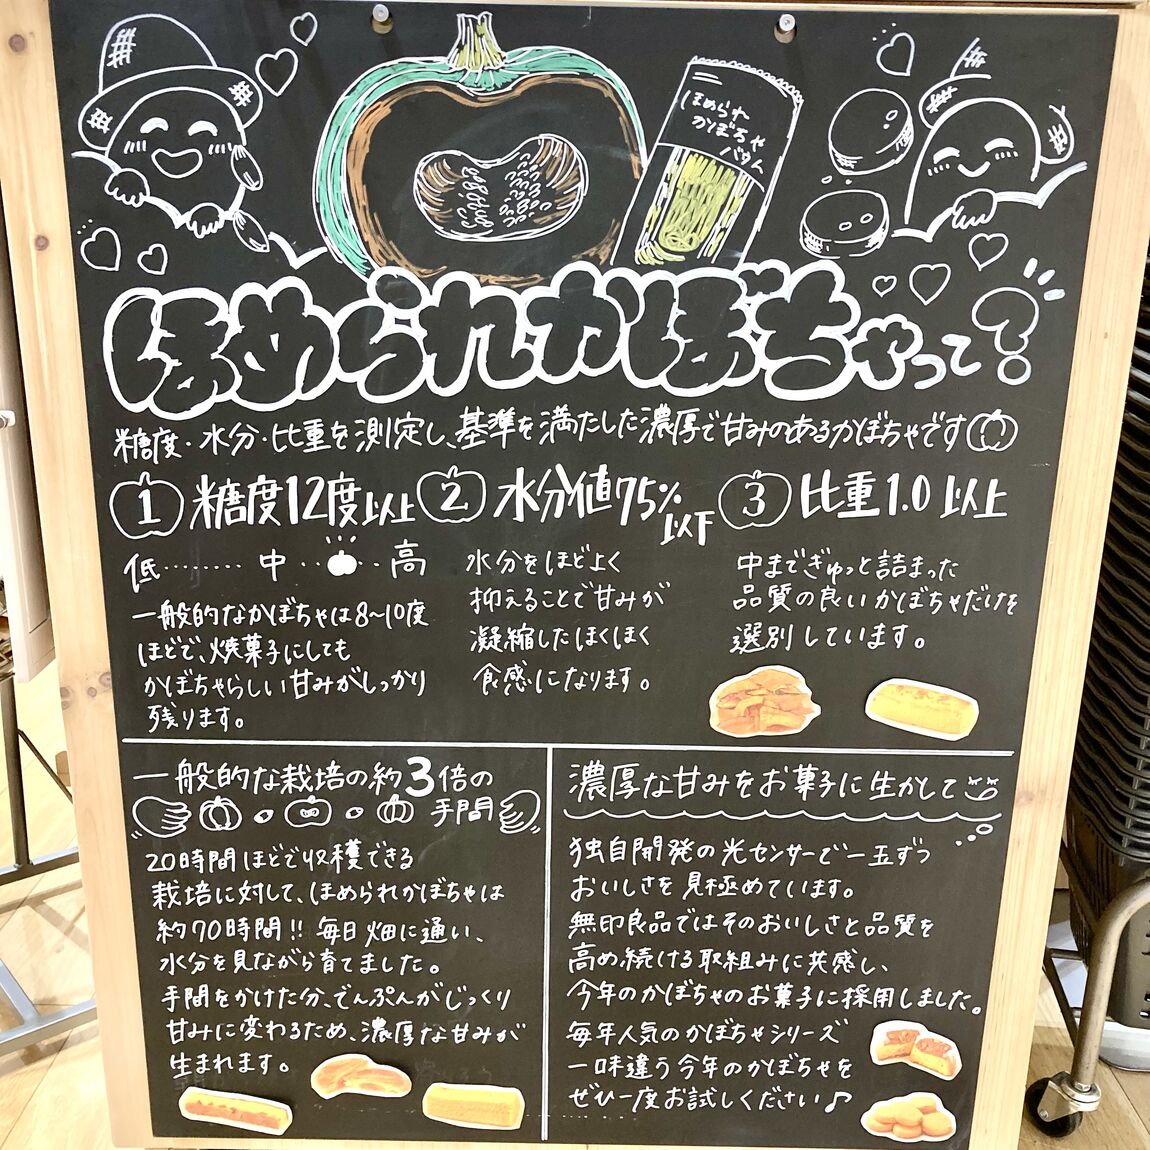 ほめられ
かぼちゃ
バウム
ほめられかぼちゃって?
糖度・水分・比重を測定し、基準を満たした濃厚で甘みのあるかぼちゃです
1 糖度12度以上
低........中......高
一般的なかぼちゃは8〜10度
ほどで、焼菓子にしても
かぼちゃらしい甘みがしっかり
残ります。
2 水分値75%以下
水分をほどよく
抑えることで甘みが
凝縮したほくほく
食感になります。
3 比重1.0以上
中までぎゅっと詰まった
品質の良いかぼちゃだけを
選別しています。
一般的な栽培の約3倍の
手間
20時間ほどで収穫できる
栽培に対して、ほめられかぼちゃは
約70時間!! 毎日畑に通い、
水分を見ながら育てました。
手間をかけた分、でんぷんがじっくり
甘みに変わるため、濃厚な甘みが
生まれます。
濃厚な甘みをお菓子に生かして
独自開発の光センサーで一玉ずつ
おいしさを見極めています。
無印良品ではそのおいしさと品質を
高め続ける取組みに共感し、
今年のかぼちゃのお菓子に採用しました。
毎年人気のかぼちゃシリーズ
一味違う今年のかぼちゃを
ぜひ一度お試しください♪